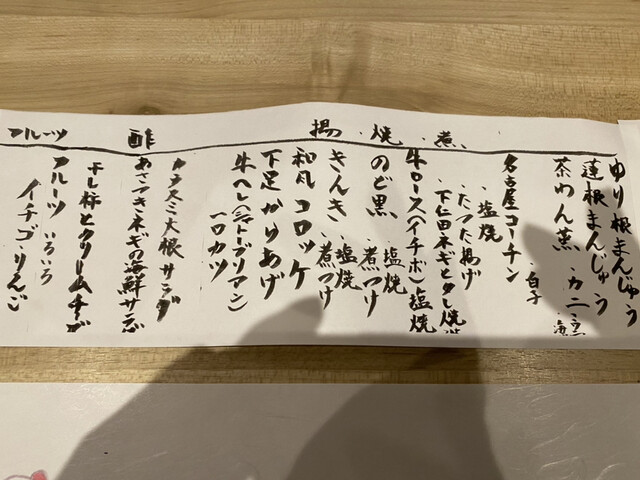 揚、焼、煮、
ゆり根まんじゅう
蓮根まんじゅう
茶わん蒸 カニ
白子
名古屋コーチン
・塩焼
・たつた揚げ
・下仁田ネギとタレ焼
牛ロース(イチボ)塩焼
のど黒 ・塩焼
・煮つけ
きんき ・塩焼
・煮つけ
和風コロッケ
下足かりあげ
牛ヘレ(シャトーブリアン)
一口カツ
酢
カラスミ大根サラダ
あさつきネギの海鮮サラダ
干し柿とクリームチーズ
フルーツ
フルーツいろいろ
イチゴ・りんご